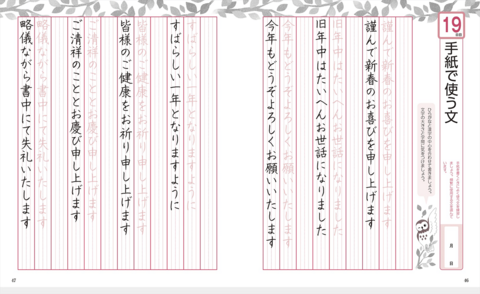 19
手紙で使う文
謹んで新春のお喜びを申し上げます
謹んで新春のお喜びを申し上げます
旧年中はたいへんお世話になりました
旧年中はたいへんお世話になりました
今年もどうぞよろしくお願いいたします
今年もどうぞよろしくお願いいたします
すばらしい一年となりますように
すばらしい一年となりますように
皆様のご健康をお祈り申し上げます
皆様のご健康をお祈り申し上げます
ご清祥のこととお慶び申し上げます
ご清祥のこととお慶び申し上げます
略儀ながら書中にて失礼いたします
略儀ながら書中にて失礼いたします